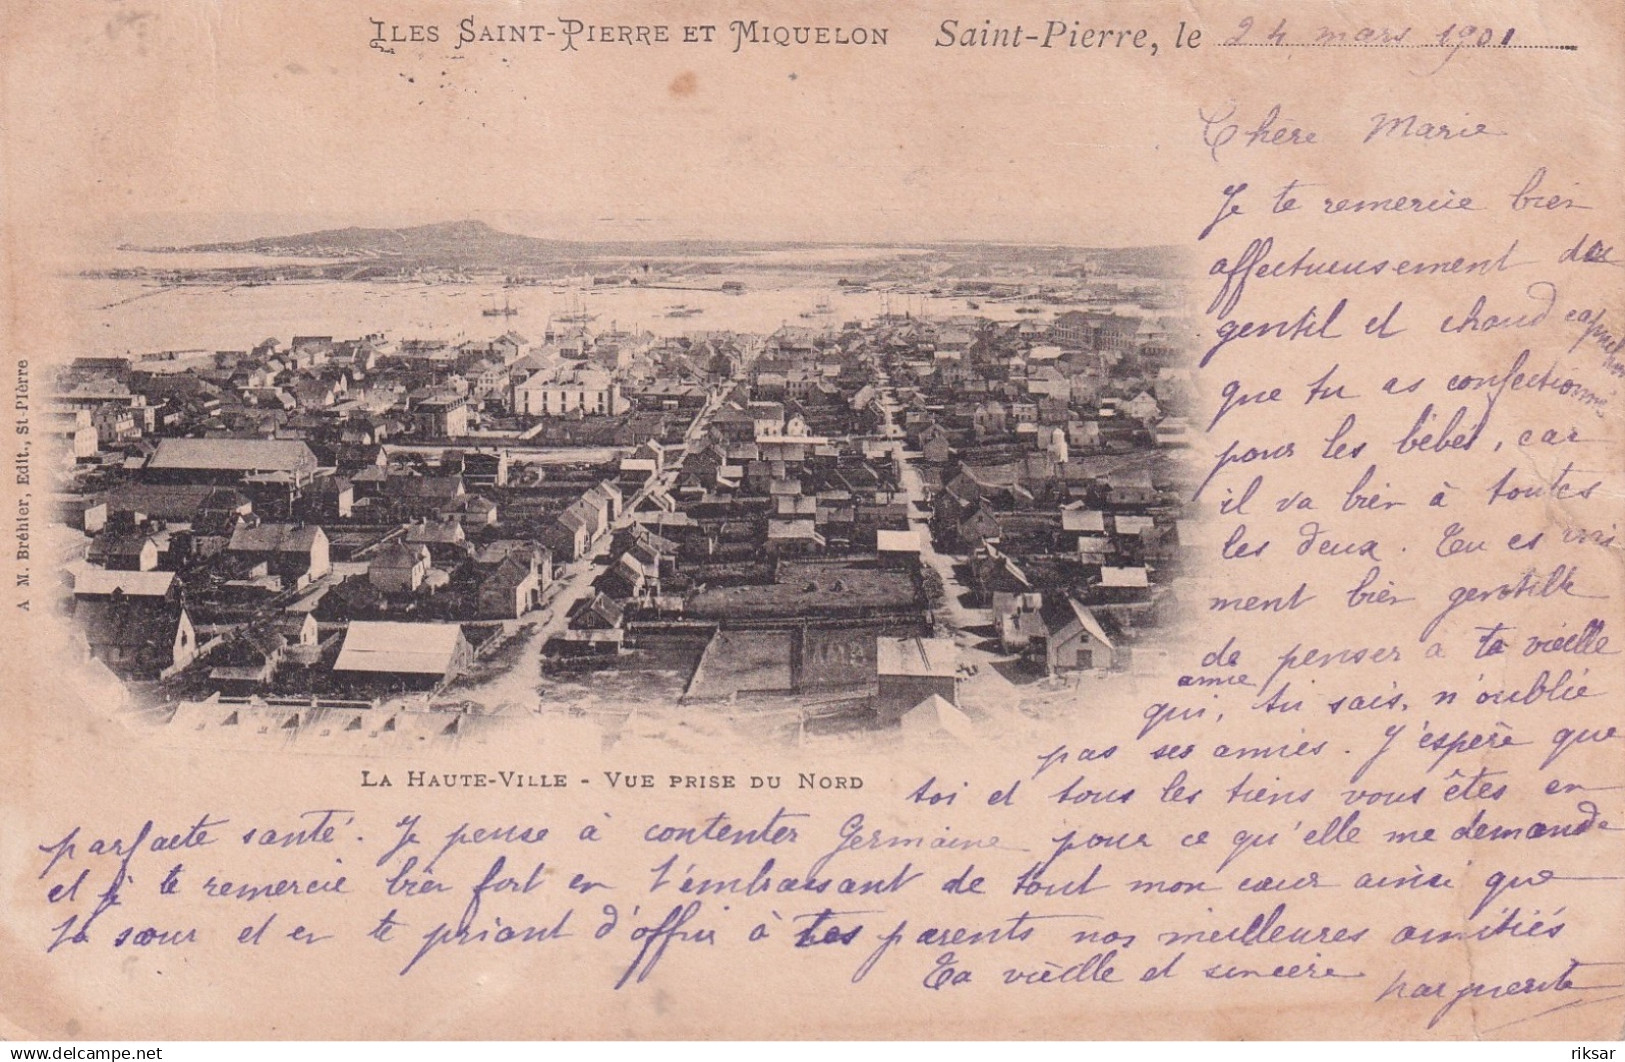 ILES SAINT-PIERRE ET MIQUELON Saint-Pierre, le 24 mars 1901
Chère Marie
Je te remercie bien
affectueusement du
gentil et chaud capuchon
que tu as confectionné
pour les bébés, car
il va bien à toutes
les deux. Tu es vrai
ment bien gentille
de penser a ta vieille
amie
qui, tu sais, n'oublie
pas ses amies. J'espère que
toi et tous les tiens vous êtes en
parfaite santé. Je pense à contenter Germaine pour ce qu'elle me demande
et je te remercie bien fort en t'embrassant de tout mon cœur ainsi que
ta sœur et en te priant d'offrir à tes parents nos meilleures amitiés
Ta vieille et sincère Marguerite
LA HAUTE-VILLE - VUE PRISE DU NORD
A M. Bréhier, Edit., St-Pierre
riksar